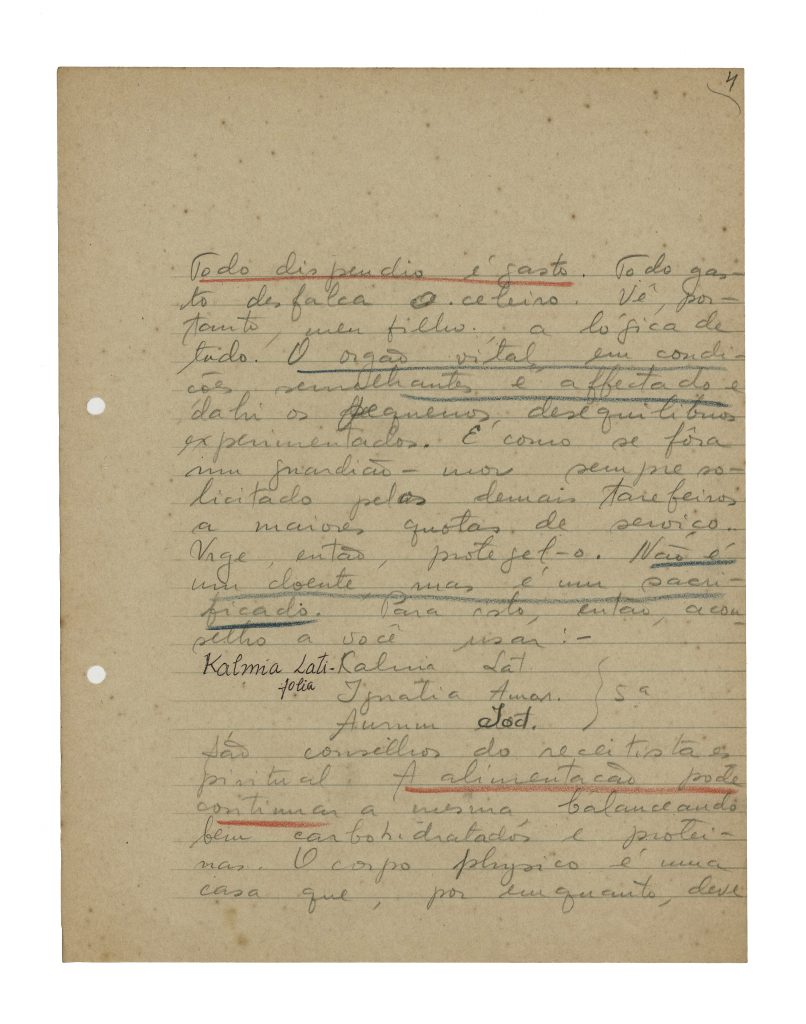 4
Todo dispendio é gasto. Todo gas-
to desfalca o celeiro. Vê, por-
tanto, meu filho, a lógica de
tudo. O orgão vital em condi-
ções semelhantes é affectado e
dahi os pequenos desequilibrios
experimentados. E como se fôra
um guardião-mor sempre so-
licitado pelos demais tarefeiros
a maiores quotas de serviço.
Urge, então, protegel-o. Não é
um doente mas é um sacri-
ficado. Para isto, então, acon-
selho a você usar:-
Kalmia Lati- Kalmia Lat.
folia Ignatia Amar. 5ª
Aurum Iod.
São conselhos do receitista es
piritual. A alimentação pode
continuar a mesma balanceando
bem carbohidratados e protei-
nas. O corpo physico é uma
casa que, por emquanto, deve